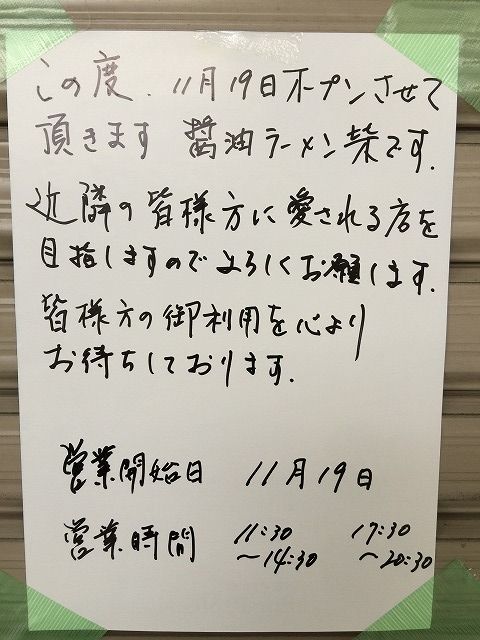 この度、11月19日オープンさせて
頂きます 醤油ラーメン柴です.
近隣の皆様方に愛される店を
目指しますのでよろしくお願します.
皆様方の御利用を心より
お待ちしております.
営業開始日 11月19日
営業時間 11:30 17:30
～14:30 ～20:30